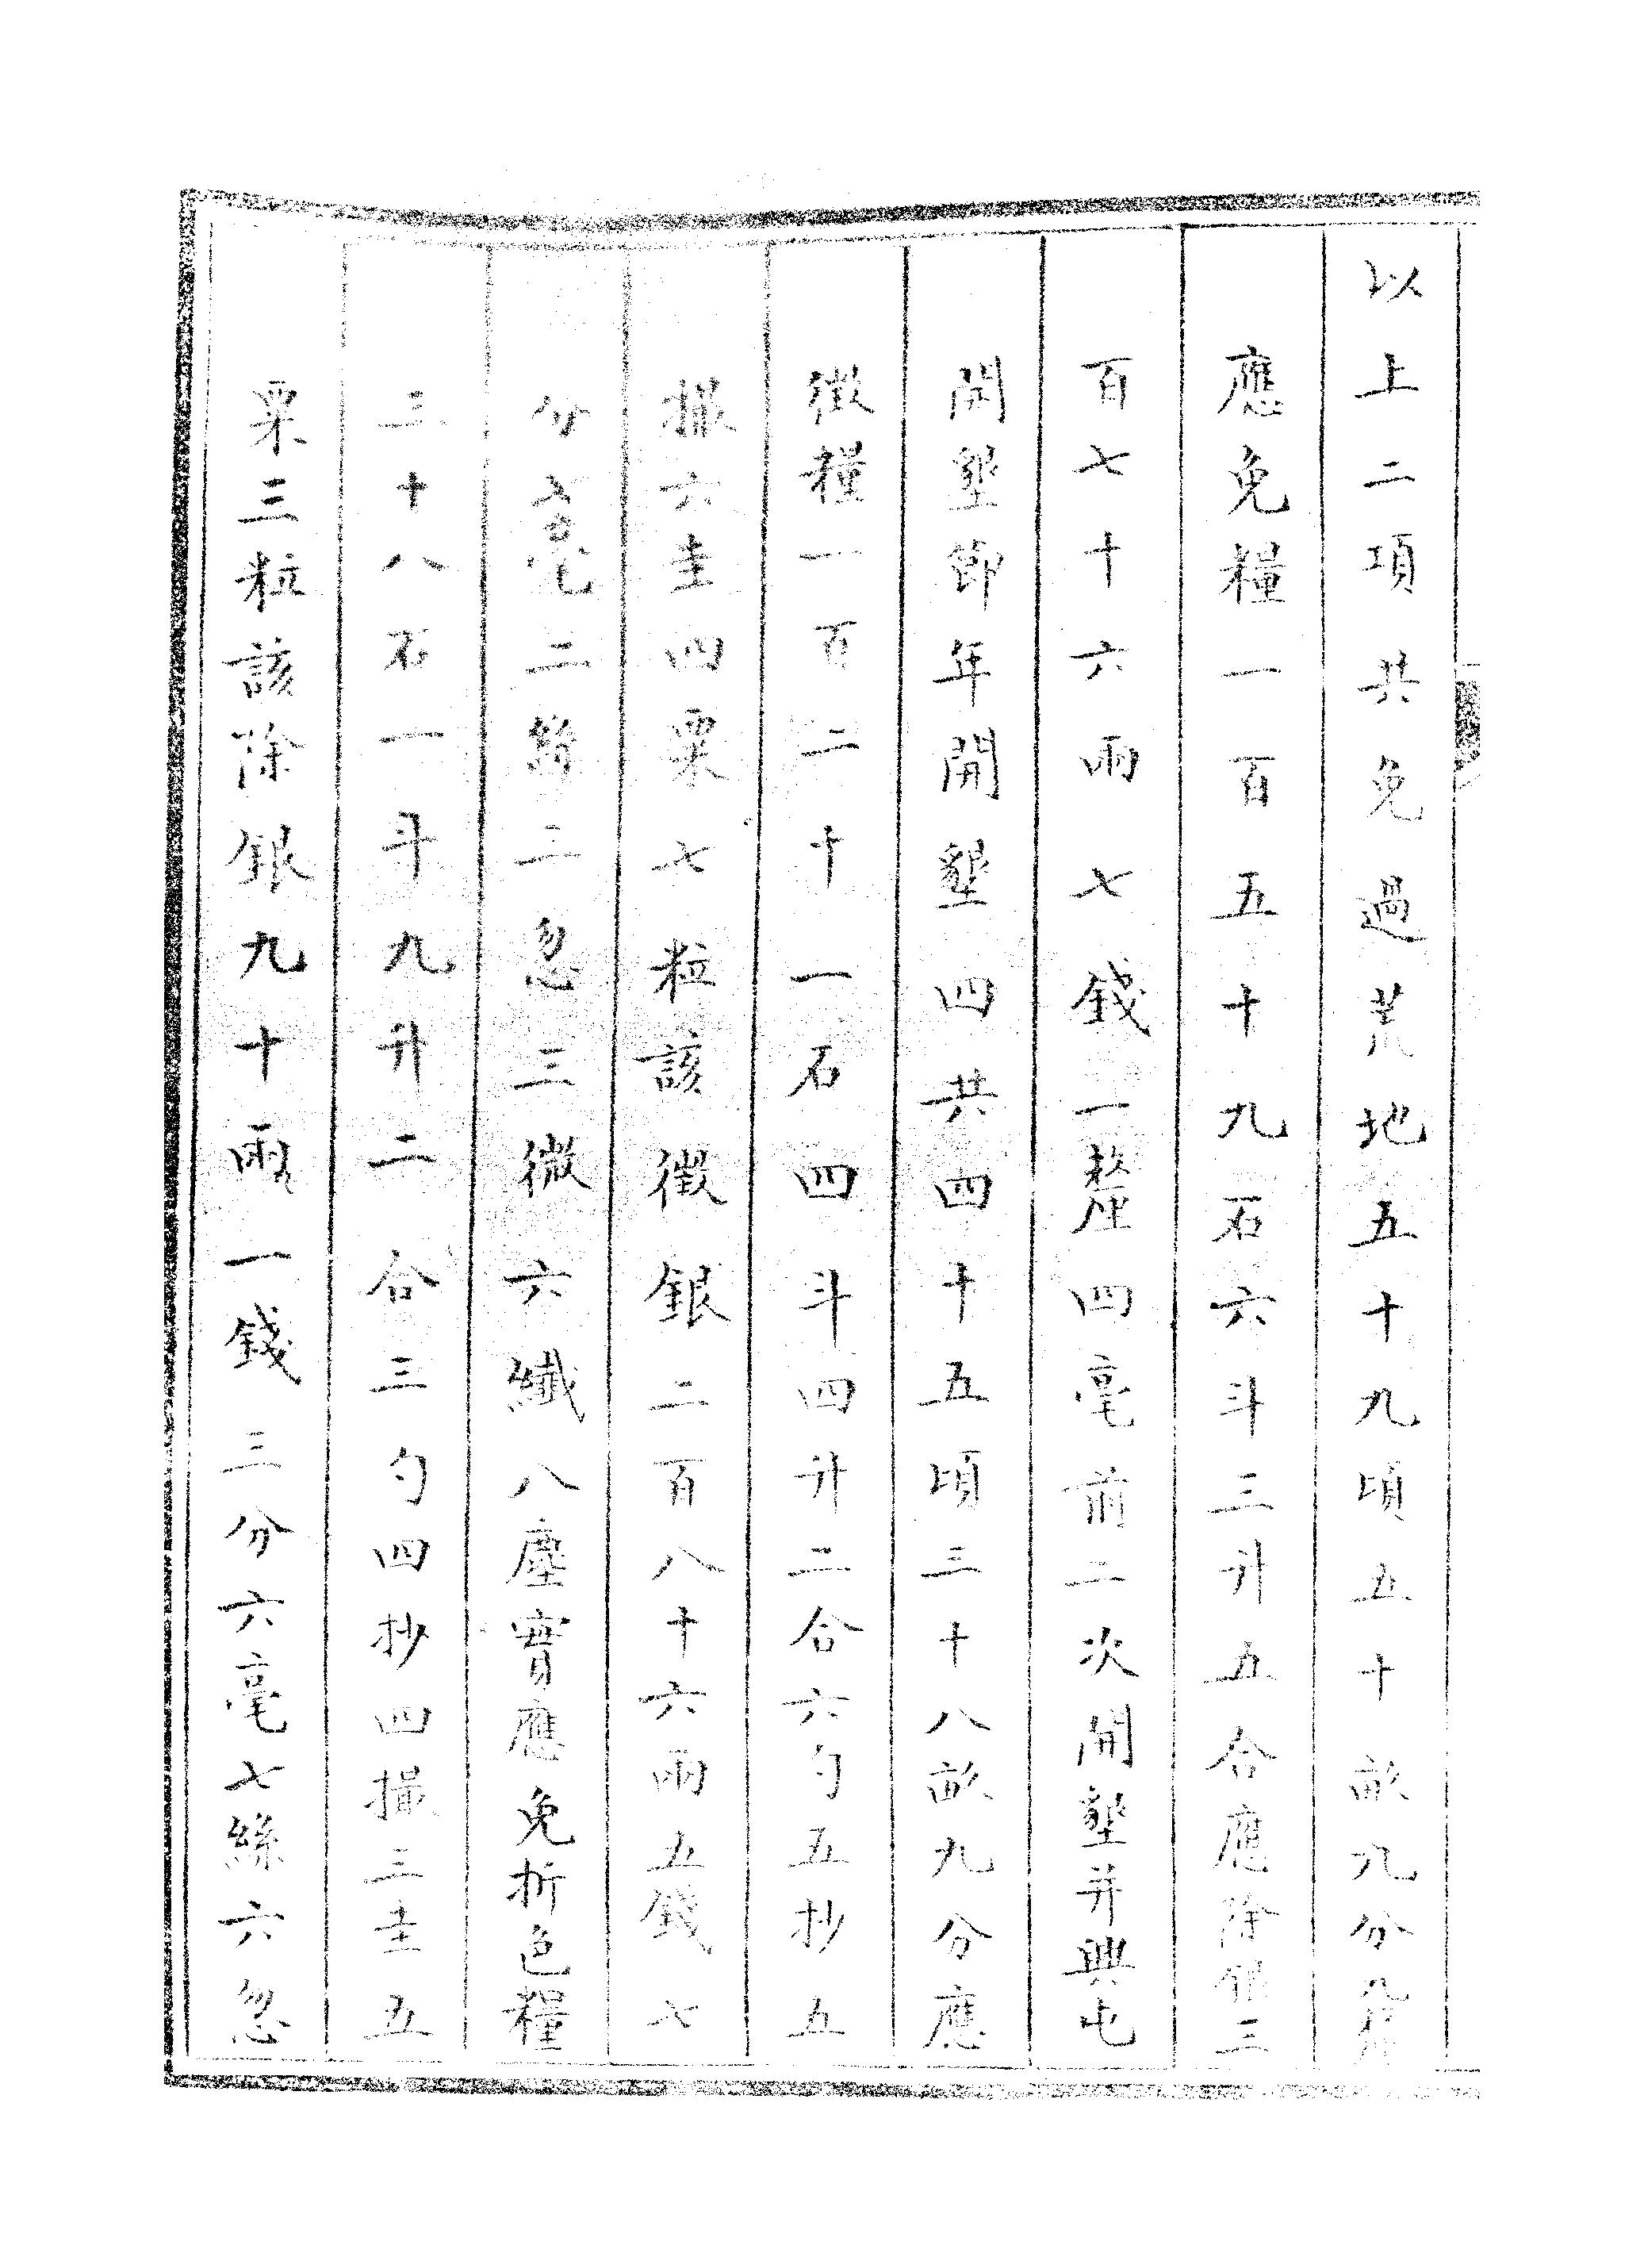 以上二項共免過荒地五十九頃五十畝九分九釐
應免糧一百五十九石六斗三升五合應除銀三
百七十六兩七錢一釐四毫前二次開墾并興屯
開墾節年開墾四共四十五頃三十八畝九分應
徵糧一百二十一石四斗四升二合六勺五抄五
撮六圭四粟七粒該徵銀二百八十六兩五錢七
分七毫二絲二忽三微六纖八塵實應免折色糧
三十八石一斗九升二合三勺四抄四撮三圭五
粟三粒該除銀九十兩一錢三分六毫七絲六忽